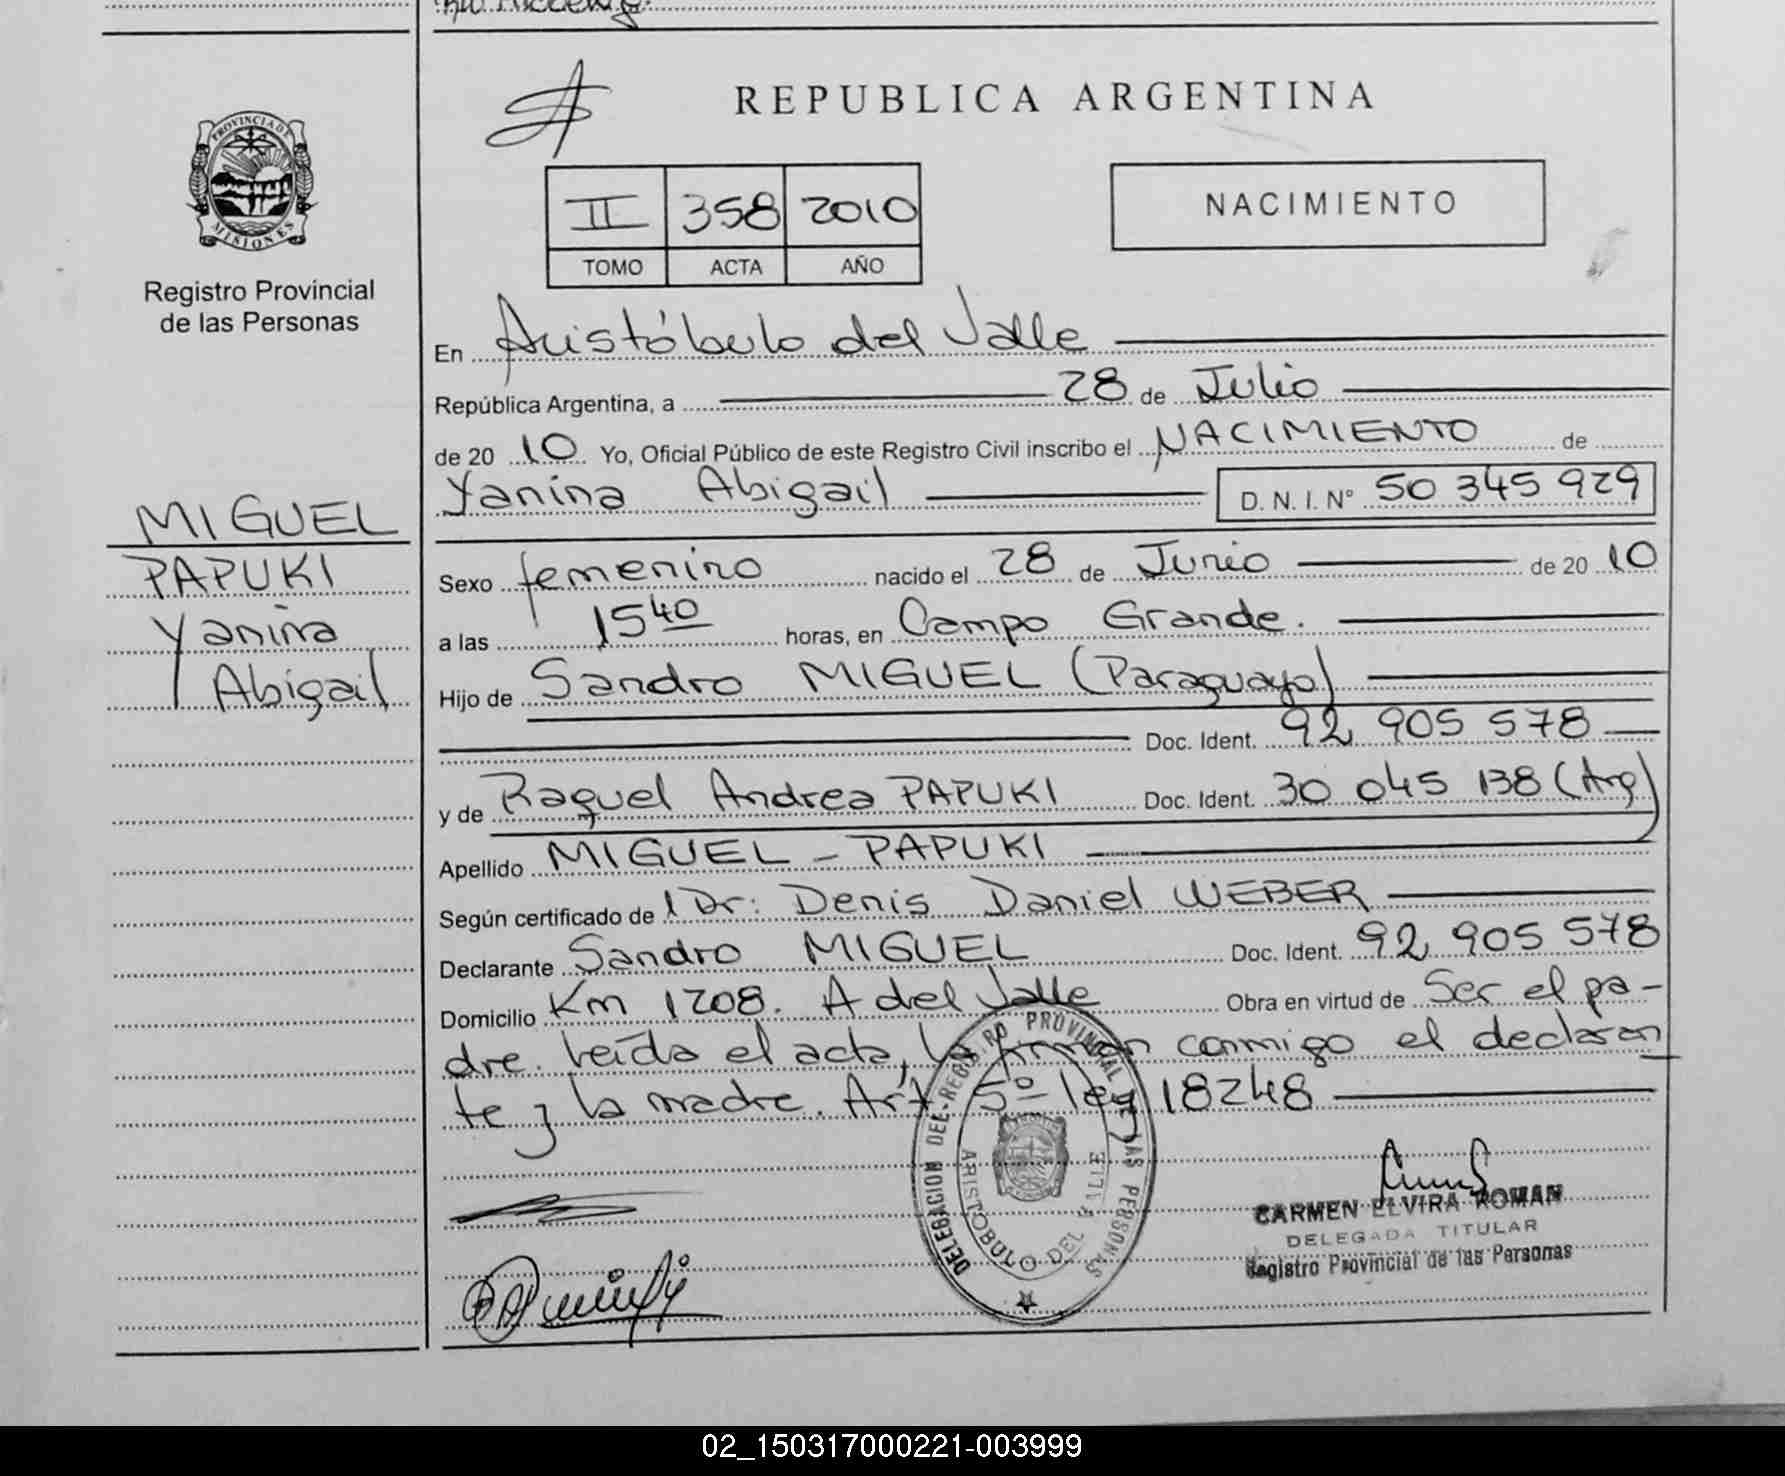 PROVINCIA DE
MISIONES
Registro Provincial
de las Personas
MIGUEL
PAPUKI
Yanina
Abigail
REPUBLICA ARGENTINA
II 358 2010
TOMO ACTA AÑO
NACIMIENTO
En Aristóbulo del Valle
República Argentina, a 28 de Julio
de 20 10 Yo, Oficial Público de este Registro Civil inscribo el NACIMIENTO de
Yanina Abigail D. N. I. N° 50 345 929
Sexo femenino nacido el 28 de Junio de 20 10
a las 15 40 horas, en Campo Grande.
Hijo de Sandro MIGUEL (Paraguayo)
Doc. Ident. 92 905 578
y de Raquel Andrea PAPUKI Doc. Ident. 30 045 138 (Arg)
Apellido MIGUEL - PAPUKI
Según certificado de Dr: Denis Daniel WEBER
Declarante Sandro MIGUEL Doc. Ident. 92 905 578
Domicilio Km 1208. A del Valle Obra en virtud de Ser el pa-
dre. leída el acta, la firman conmigo el declaran
te y la madre. Art 5º ley 18248
DELEGACION DEL REGISTRO PROVINCIAL DE LAS PERSONAS
ARISTOBULO DEL VALLE
CARMEN ELVIRA ROMAN
DELEGADA TITULAR
Registro Provincial de las Personas
02_150317000221-003999